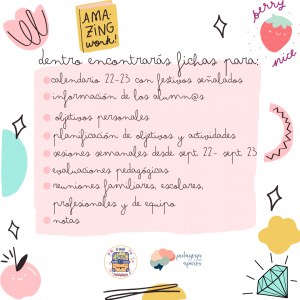 AMA
ZING
work!
berry
nice
dentro encontrarás fichas para:
calendario 22-23 con festivos señalados
información de los alumn@s
objetivos personales
planificación de objetivos y actividades
sesiones semanales desde sept. 22- sept. 23
evaluaciones pedagógicas
reuniones familiares, escolares,
profesionales y de equipo
notas